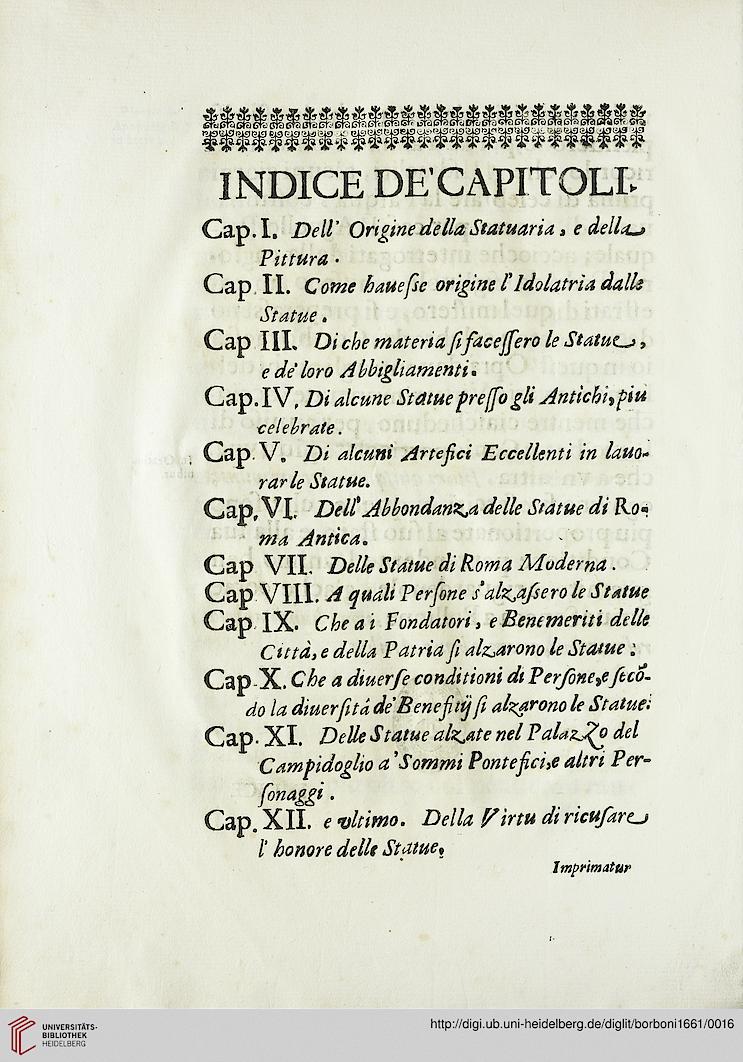 INDICE DE' CAPITOLI.
Cap. I. Dell' Origine della Statuaria, e della
Pittura.
Cap. II. Come haueſse origine l'Idolatria dalle
Statue.
Cap III. Di che materia ſi faceſſero le Statue,
e de' loro Abbigliamenti.
Cap. IV. Di alcune Statue preſſo gli Antichi, piu
celebrate.
Cap. V. Di alcuni Artefici Eccellenti in lauo-
rar le Statue.
Cap. VI. Dell' Abbondanza delle Statue di Ro-
ma Antica.
Cap VII. Delle Statue di Roma Moderna.
Cap VIII. A quali Perſone s'alzaſsero le Statue
Cap. IX. Che a i Fondatori, e Benemeriti delle
Città, e della Patria ſi alzarono le Statue:
Cap. X. Che a diuerſe conditioni di Perſone, e ſecõ-
do la diuerſitá de' Benefitij ſi alzarono le Statue:
Cap. XI. Delle Statue alzate nel Palazzo del
Campidoglio a' Sommi Pontefici, e altri Per-
ſonaggi.
Cap. XII. e vltimo. Della Virtu di ricuſare
l' honore delle Statue.
Imprimatur
UNIVERSITÄTS-
BIBLIOTHEK
HEIDELBERG
http://digi.ub.uni-heidelberg.de/diglit/borboni1661/0016